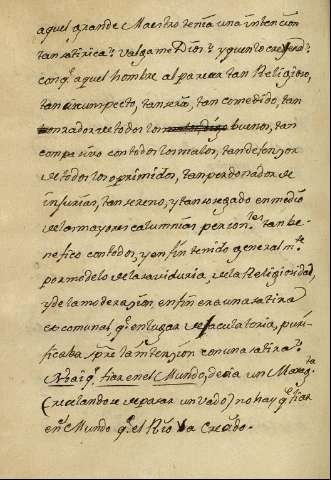 aquel grande Maestro tenia una intencion
tan satirica? valgame Dios! y quien lo creyera?
conq.e aquel hombre al parecer tan Religioso,
tan circumspecto, tan serio, tan comedido, tan
honrador de todos los buenos, tan
compasivo con todos los malos, tan defensor
de todos los oprimidos, tan perdonador de
injurias, tan sereno, y tan sosegado en medio
de las mayores calumnias personles tan be-
nefico con todos, y en fin tenido general m.te
por modelo de la saviduria, de la Religiosidad,
y de la moderacion, en fin era una satira
de comunal q.e en lugar de jaculatoria, puri-
ficaba spre la intencion con una satira?
No ai q.e fiar en el Mundo, decia un
(recelandose de pasar un vado) no hay q.e fiar
en el Mundo q.e el Rio va Crecido.